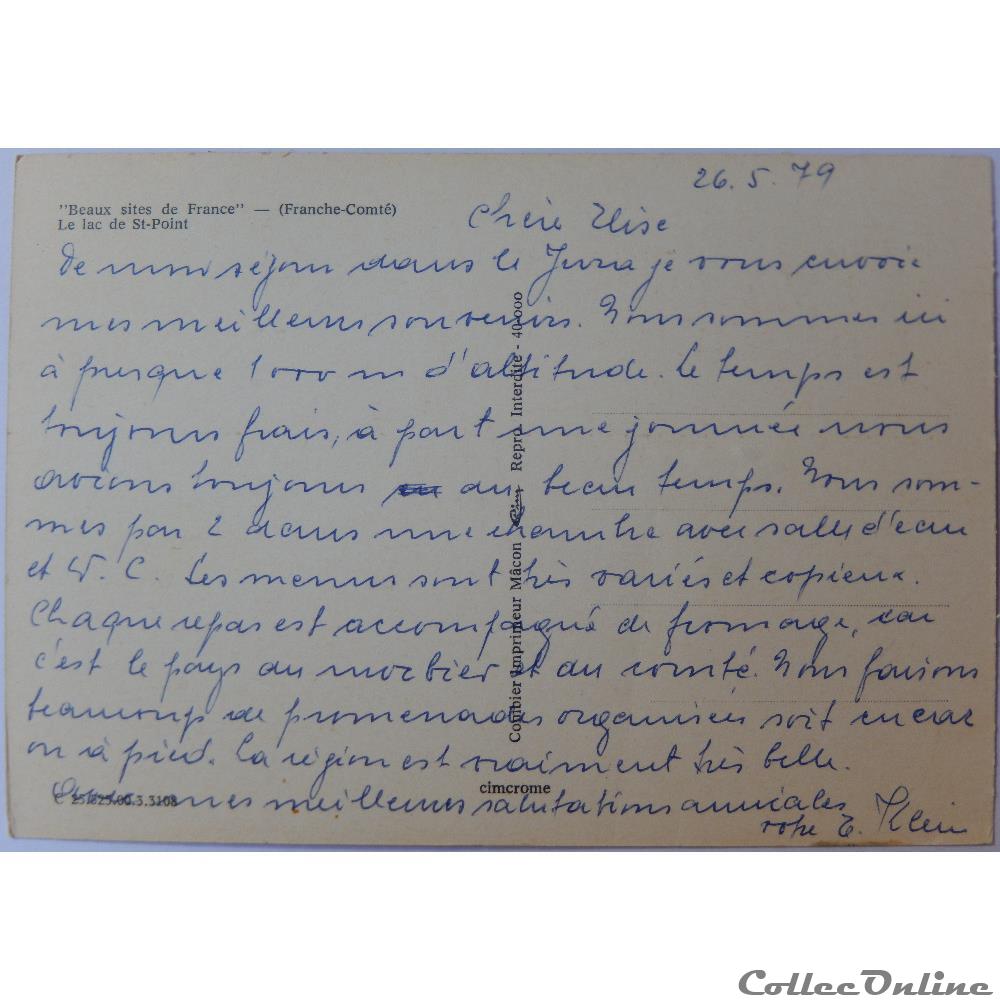 26. 5. 79
"Beaux sites de France" — (Franche-Comté)
Le lac de St-Point
Chère Elise
De mon séjour dans le Jura je vous envoie
mes meilleurs souvenirs. Nous sommes ici
à presque 1000 m d'altitude. Le temps est
toujours frais, à part une journée nous
avions toujours du beau temps. Nous som-
mes par 2 dans une chambre avec salle d'eau
et W. C. Les menus sont très variés et copieux.
Chaque repas est accompagné de fromage, car
c'est le pays du morbier et du comté. Nous faisons
beaucoup de promenades organisées soit en car
ou à pied. La région est vraiment très belle.
mes meilleures salutations amicales
votre E. Klein
Combier Imprimeur Mâcon Repro. Interdite - 40-000
cimcrome
3.3108
CollecOnline